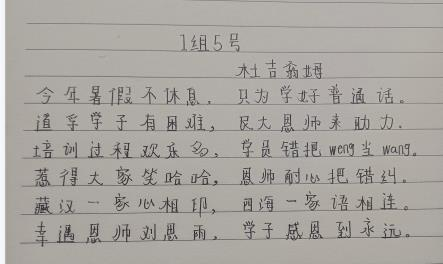 1组5号
杜吉翁姆
今年暑假不休息，只为学好普通话。
道孚学子有困难，反大恩师来助力.
培训过程欢乐多，学员错把weng当wang。
惹得大家笑哈哈，恩师耐心把错纠。
藏汉一家心相印，四海一家语相连。
幸遇恩师刘思雨，学子感恩到永远。